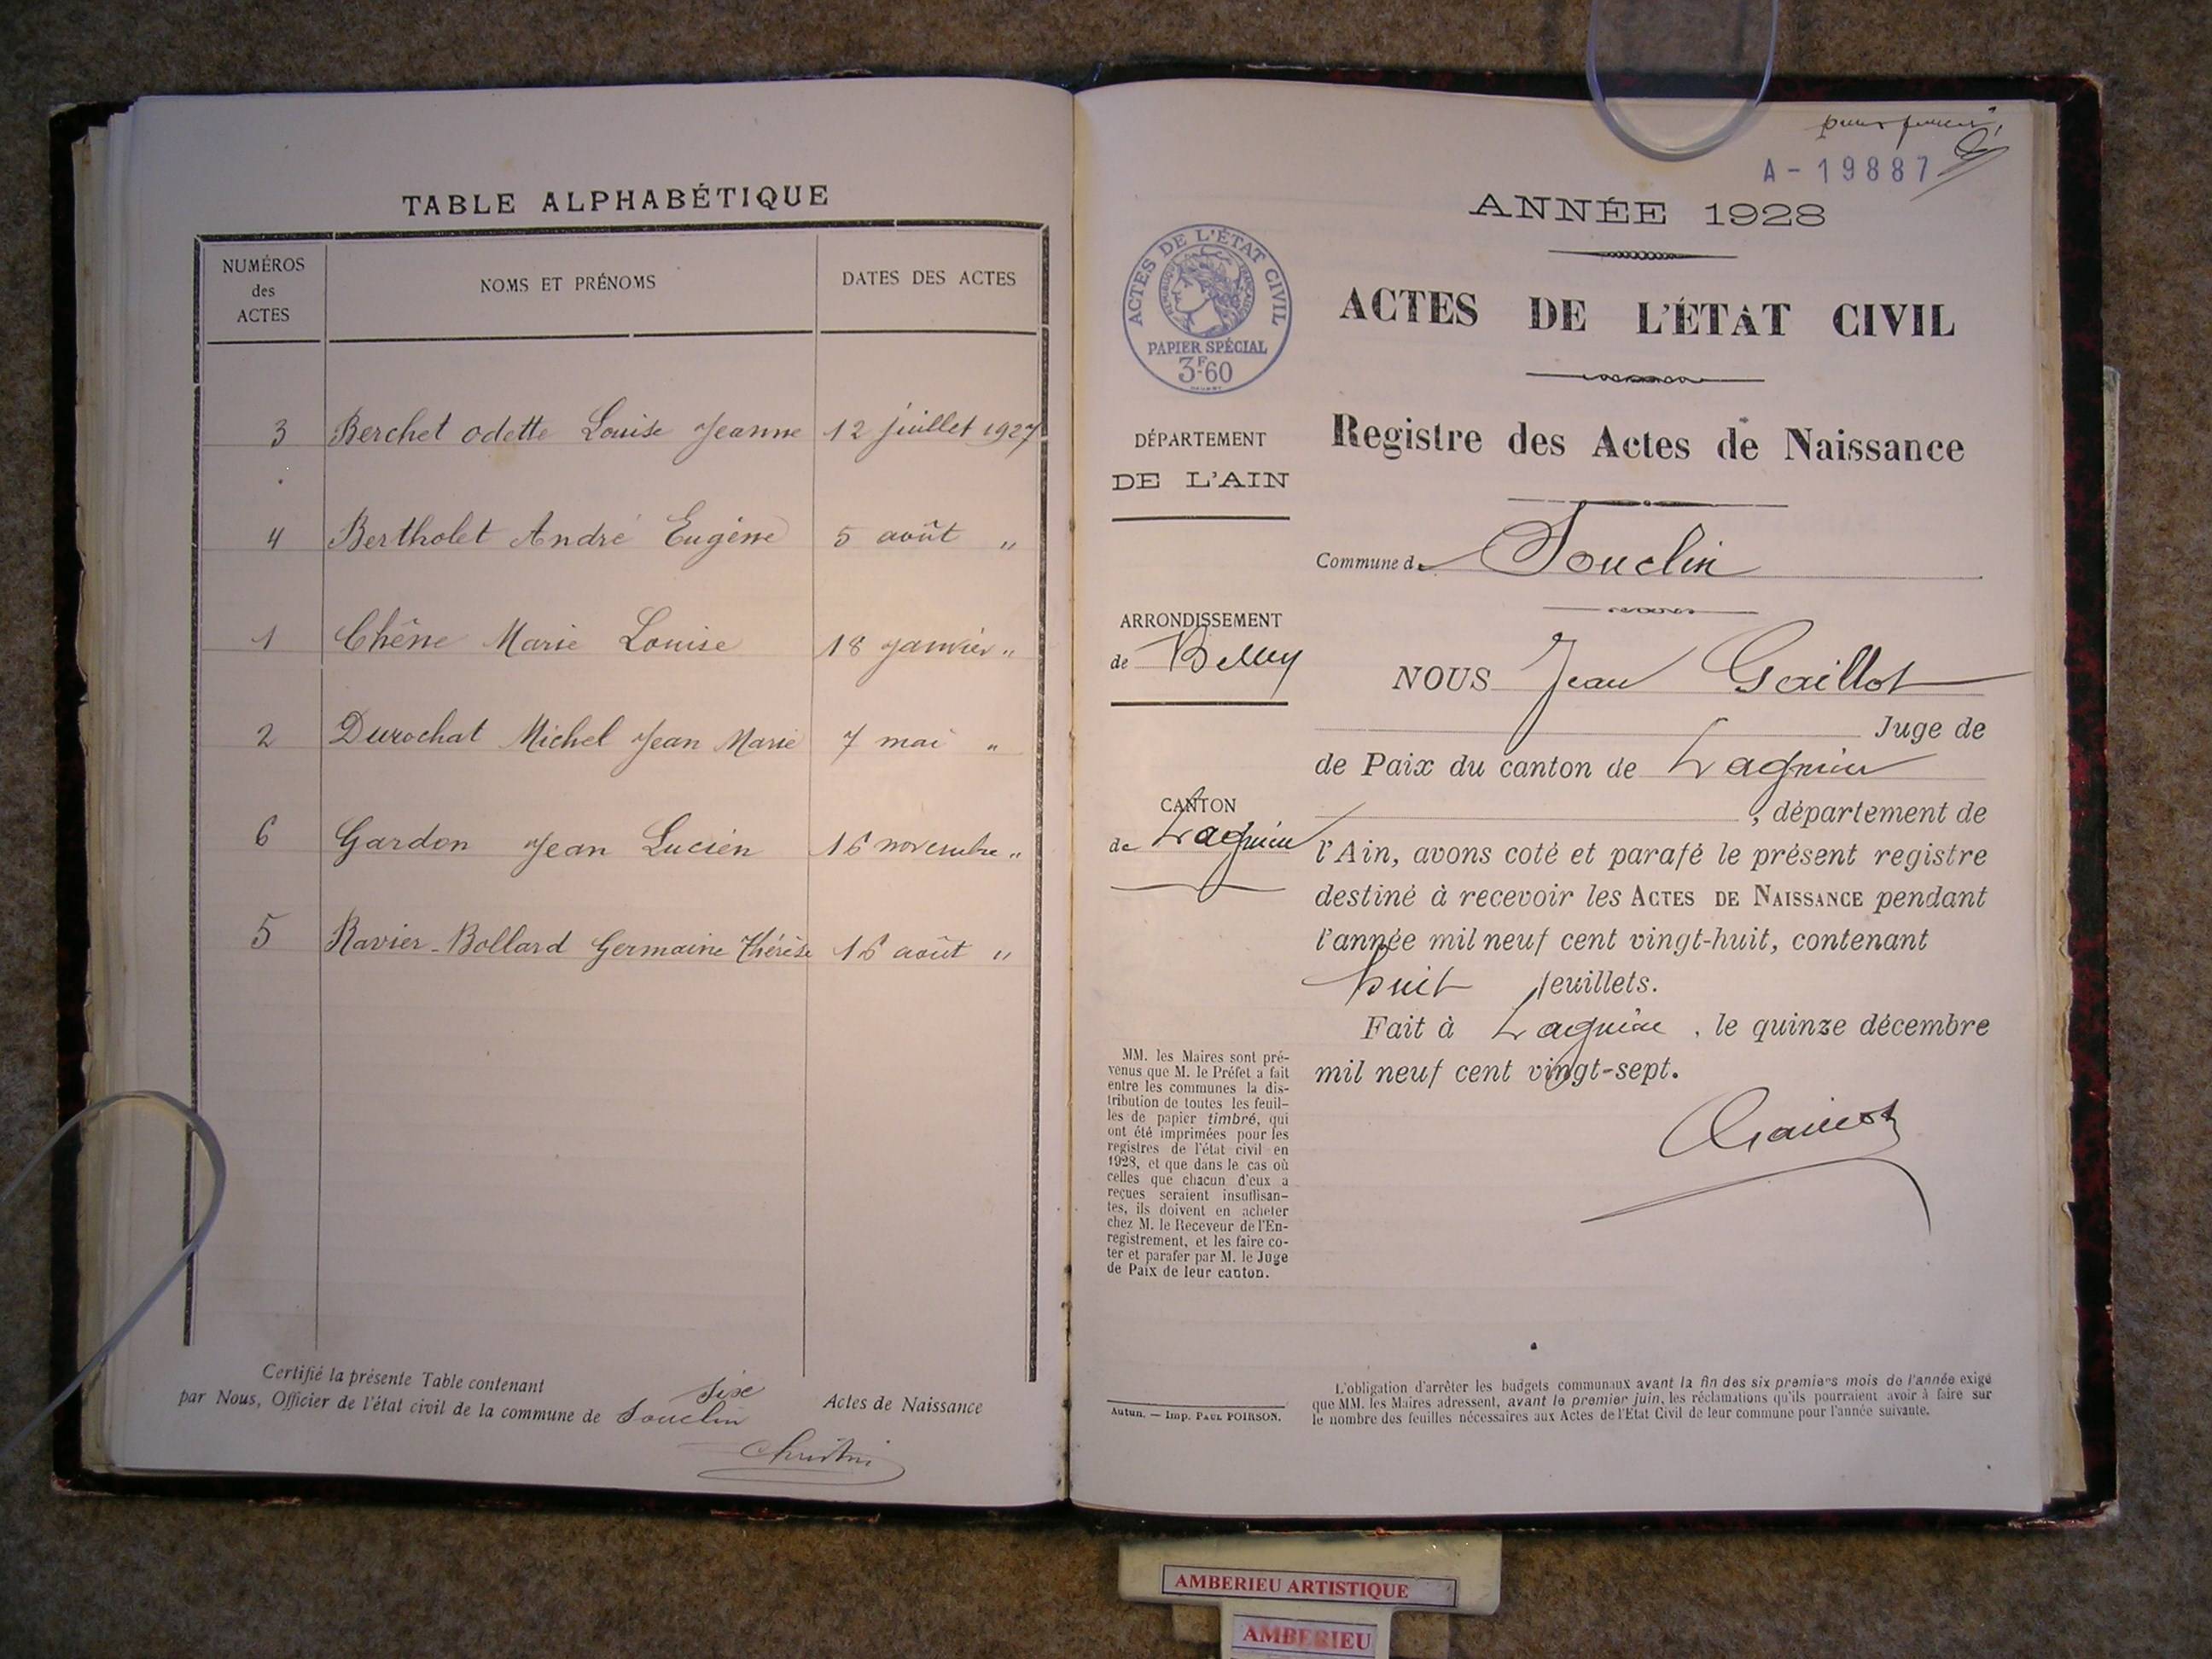 TABLE ALPHABÉTIQUE
NUMÉROS
des
ACTES
NOMS ET PRÉNOMS
DATES DES ACTES
3 Berchet Odette Louise Jeanne 12 juillet 1927
4 Bertholet André Eugène 5 août "
1 Chêne Marie Louise 18 janvier "
2 Durochat Michel Jean Marie 7 mai "
6 Gardon Jean Lucien 16 novembre "
5 Ravier-Bollard Germaine Thérèse 16 août "
Certifié la présente Table contenant Six Actes de Naissance
par Nous, Officier de l'état civil de la commune de Souclin
A-19887
ANNÉE 1928
ACTES DE L'ÉTAT CIVIL
RÉPUBLIQUE FRANÇAISE
PAPIER SPÉCIAL
3F.60
ACTES DE L'ÉTAT CIVIL
Registre des Actes de Naissance
DÉPARTEMENT
DE L'AIN
Commune de Souclin
ARRONDISSEMENT
de Belley
CANTON
de Lagnieu
NOUS Jean Gaillot
Juge de
de Paix du canton de Lagnieu
, département de
l'Ain, avons coté et parafé le présent registre
destiné à recevoir les ACTES DE NAISSANCE pendant
l'année mil neuf cent vingt-huit, contenant
huit feuillets.
Fait à Lagnieu, le quinze décembre
mil neuf cent vingt-sept.
MM. les Maires sont pré-
venus que M. le Préfet a fait
entre les communes la dis-
tribution de toutes les feuil-
les de papier timbré, qui
ont été imprimées pour les
registres de l'état civil en
1928, et que dans le cas où
celles que chacun d'eux a
reçues seraient insuffisan-
tes, ils doivent en acheter
chez M. le Receveur de l'En-
registrement, et les faire co-
ter et parafer par M. le Juge
de Paix de leur canton.
Autun. — Imp. PAUL POIRSON.
L'obligation d'arrêter les budgets communaux avant la fin des six premiers mois de l'année exige
que MM. les Maires adressent, avant le premier juin, les réclamations qu'ils pourraient avoir à faire sur
le nombre des feuilles nécessaires aux Actes de l'Etat Civil de leur commune pour l'année suivante.
AMBERIEU ARTISTIQUE
AMBERIEU